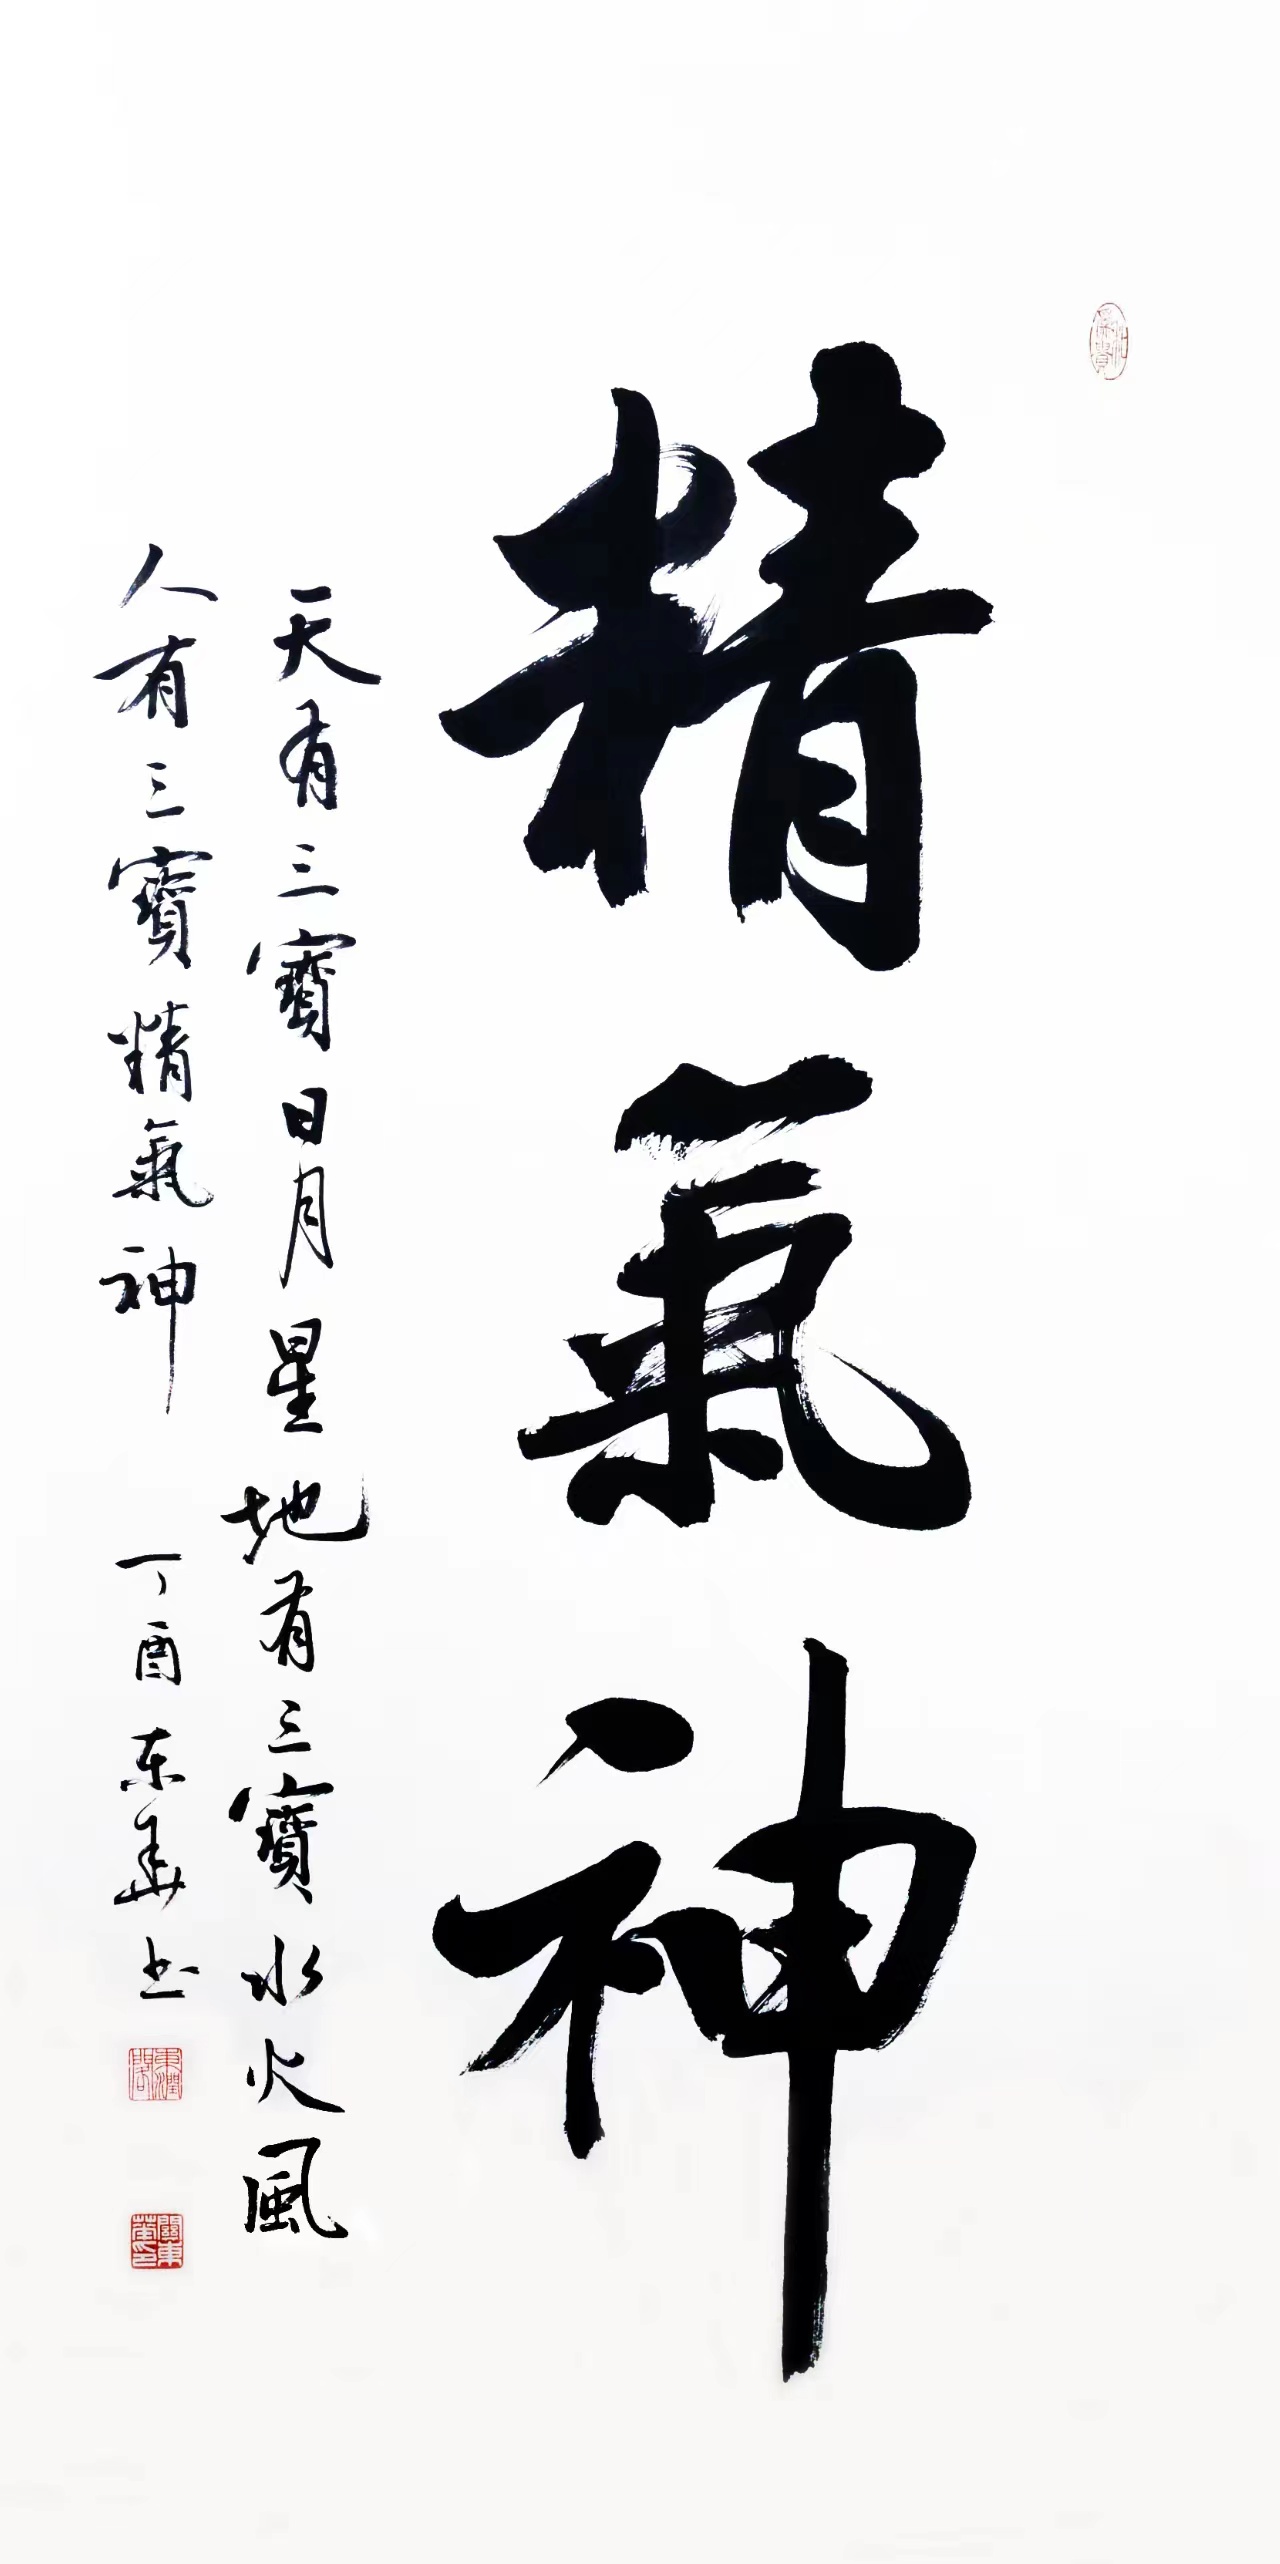 精氣神
天有三寶日月星地有三寶水火風
人有三寶精氣神 丁酉东华书